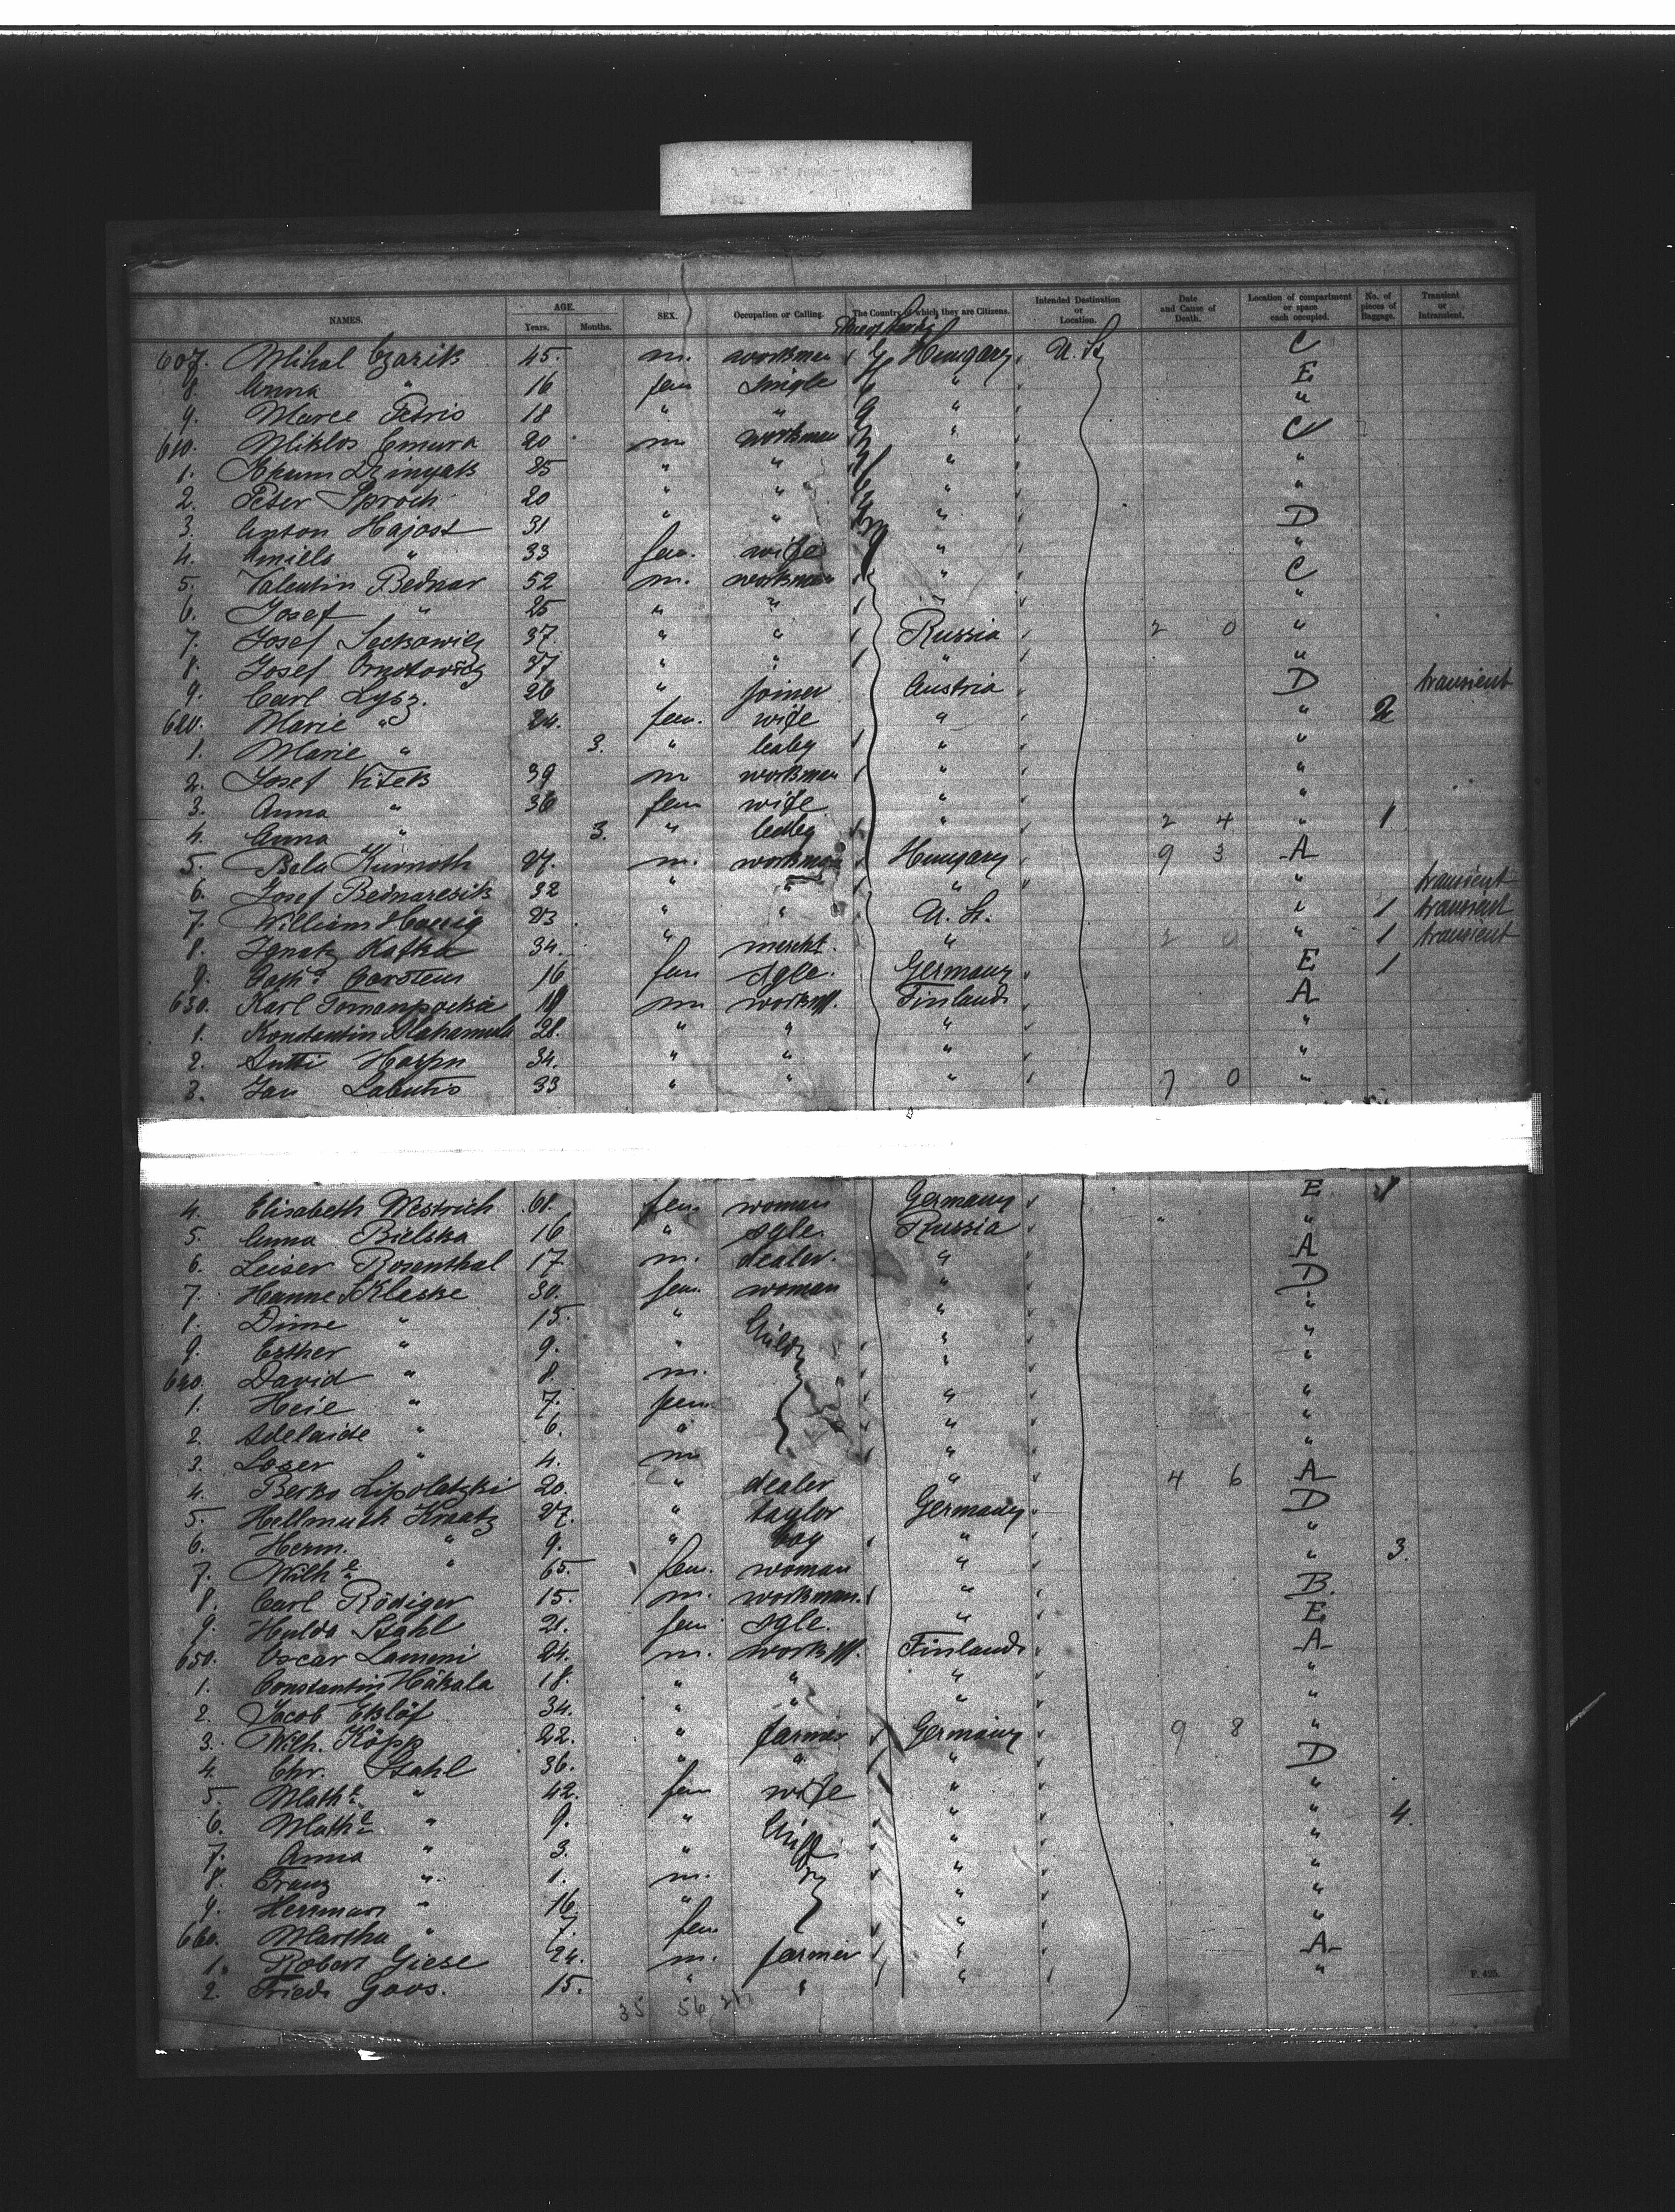 NAMES. AGE. Years. Months. SEX. Occupation or Calling. The Country of which they are Citizens. Intended Destination or Location. Date and Cause of Death. Location of compartment or space each occupied. No. of pieces of Baggage. Transient or Intransient.
607. Mihal Czarik 45. m. workman Hungary U. St. C
8. Anna " 16 fem single " E
9. Marce Petris 18 " " " "
610. Miklos Cmura 20 m workman " C
1. Dzinyak 25 " " " "
2. Peter Sproch 20 " " " "
3. Anton Hajost 31 " " " D
4. " 33 fem. wife " "
5. Valentin Bednar 52 m. workman " C
6. Josef " 25 " " " "
7. Josef 37. " " Russia 2 0 "
8. Josef 27 " " " "
9. Carl Lysz. 26 " joiner Austria D transient
620. Marie " 24. fem. wife " " 2
1. Marie " 3. " " "
2. Josef Vitek 39 m workman " "
3. Anna " 36 fem wife " "
4. Anna " 3. " " 2 4 " 1
5. Bela Kurnoth 27. m. workman Hungary 9 3 A
6. Josef Bednarcsik 32 " " " " transient
7. William 23 " " U. St. " 1 transient
8. Ignatz Kafka 34. " mercht. " 2 0 " 1 transient
9. Cath. Carstens 16 fem sgle. Germany E 1
630. Karl 18 m workm. Finland A
1. Konstantin 28. " " " "
2. Antti Harpn 34. " " " "
3. Jan Labutis 33 " " " 7 0 "
4. Elisabeth Westrich 61. fem. woman Germany E 1
5. Anna Bielska 16 " sgle. Russia "
6. Leiser Rosenthal 17 m. dealer. " A
7. Hanne SKlaske 30. fem. woman " D
8. Dime " 15. " " "
9. Esther " 9. " Child " "
640. David " 8. m. " "
1. Heie " 7. fem. " "
2. Adelaide " 6. " " "
3. Loser " 4. m " "
4. Berko Lipoletzki 20. " dealer " 4 6 A
5. Hellmuth Kraatz 27. " taylor Germany D
6. Herm. " 9. " boy " "
7. Wilh.e " 65. fem. woman " " 3.
8. Carl Rödiger 15. m. workman. " B.
9. Hulda Stahl 21. fem sgle. " E
650. Oscar Lammi 24. m. workm. Finland A
1. Constantin Häkala 18. " " " "
2. Jacob Eklöf 34. " " " "
3. Wilh. Köpp 22. " farmer Germany 9 8 "
4. Chr. Stahl 36. " " " D
5. Math.e " 42. fem wife " "
6. Math.e " 9. " " " 4.
7. Anna " 3. " " "
8. Franz " 1. m. " "
9. Herrman " 16. " " "
660. Martha " 7. fem " "
1. Robert Giese 24. m. farmer " A
2. Friedr. Goos. 15. " " " "
35 56
F. 425.